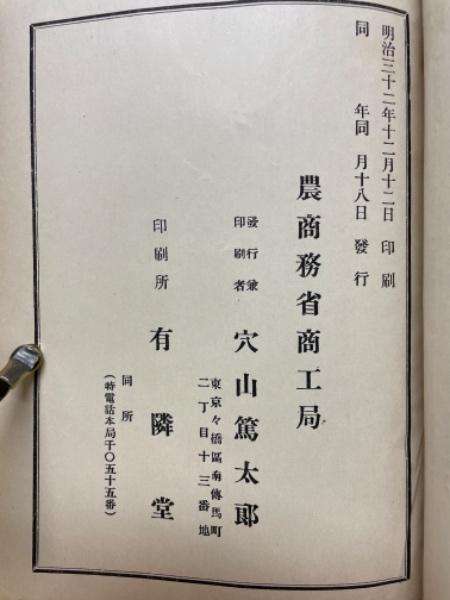 明治三十二年十二月十二日 印刷
同 年同 月十八日 發行
農商務省商工局
發行兼
印刷者 穴山篤太郎
東京々橋區南傳馬町
二丁目十三番地
印刷所 有隣堂
同所
(特電話本局千〇五十五番)